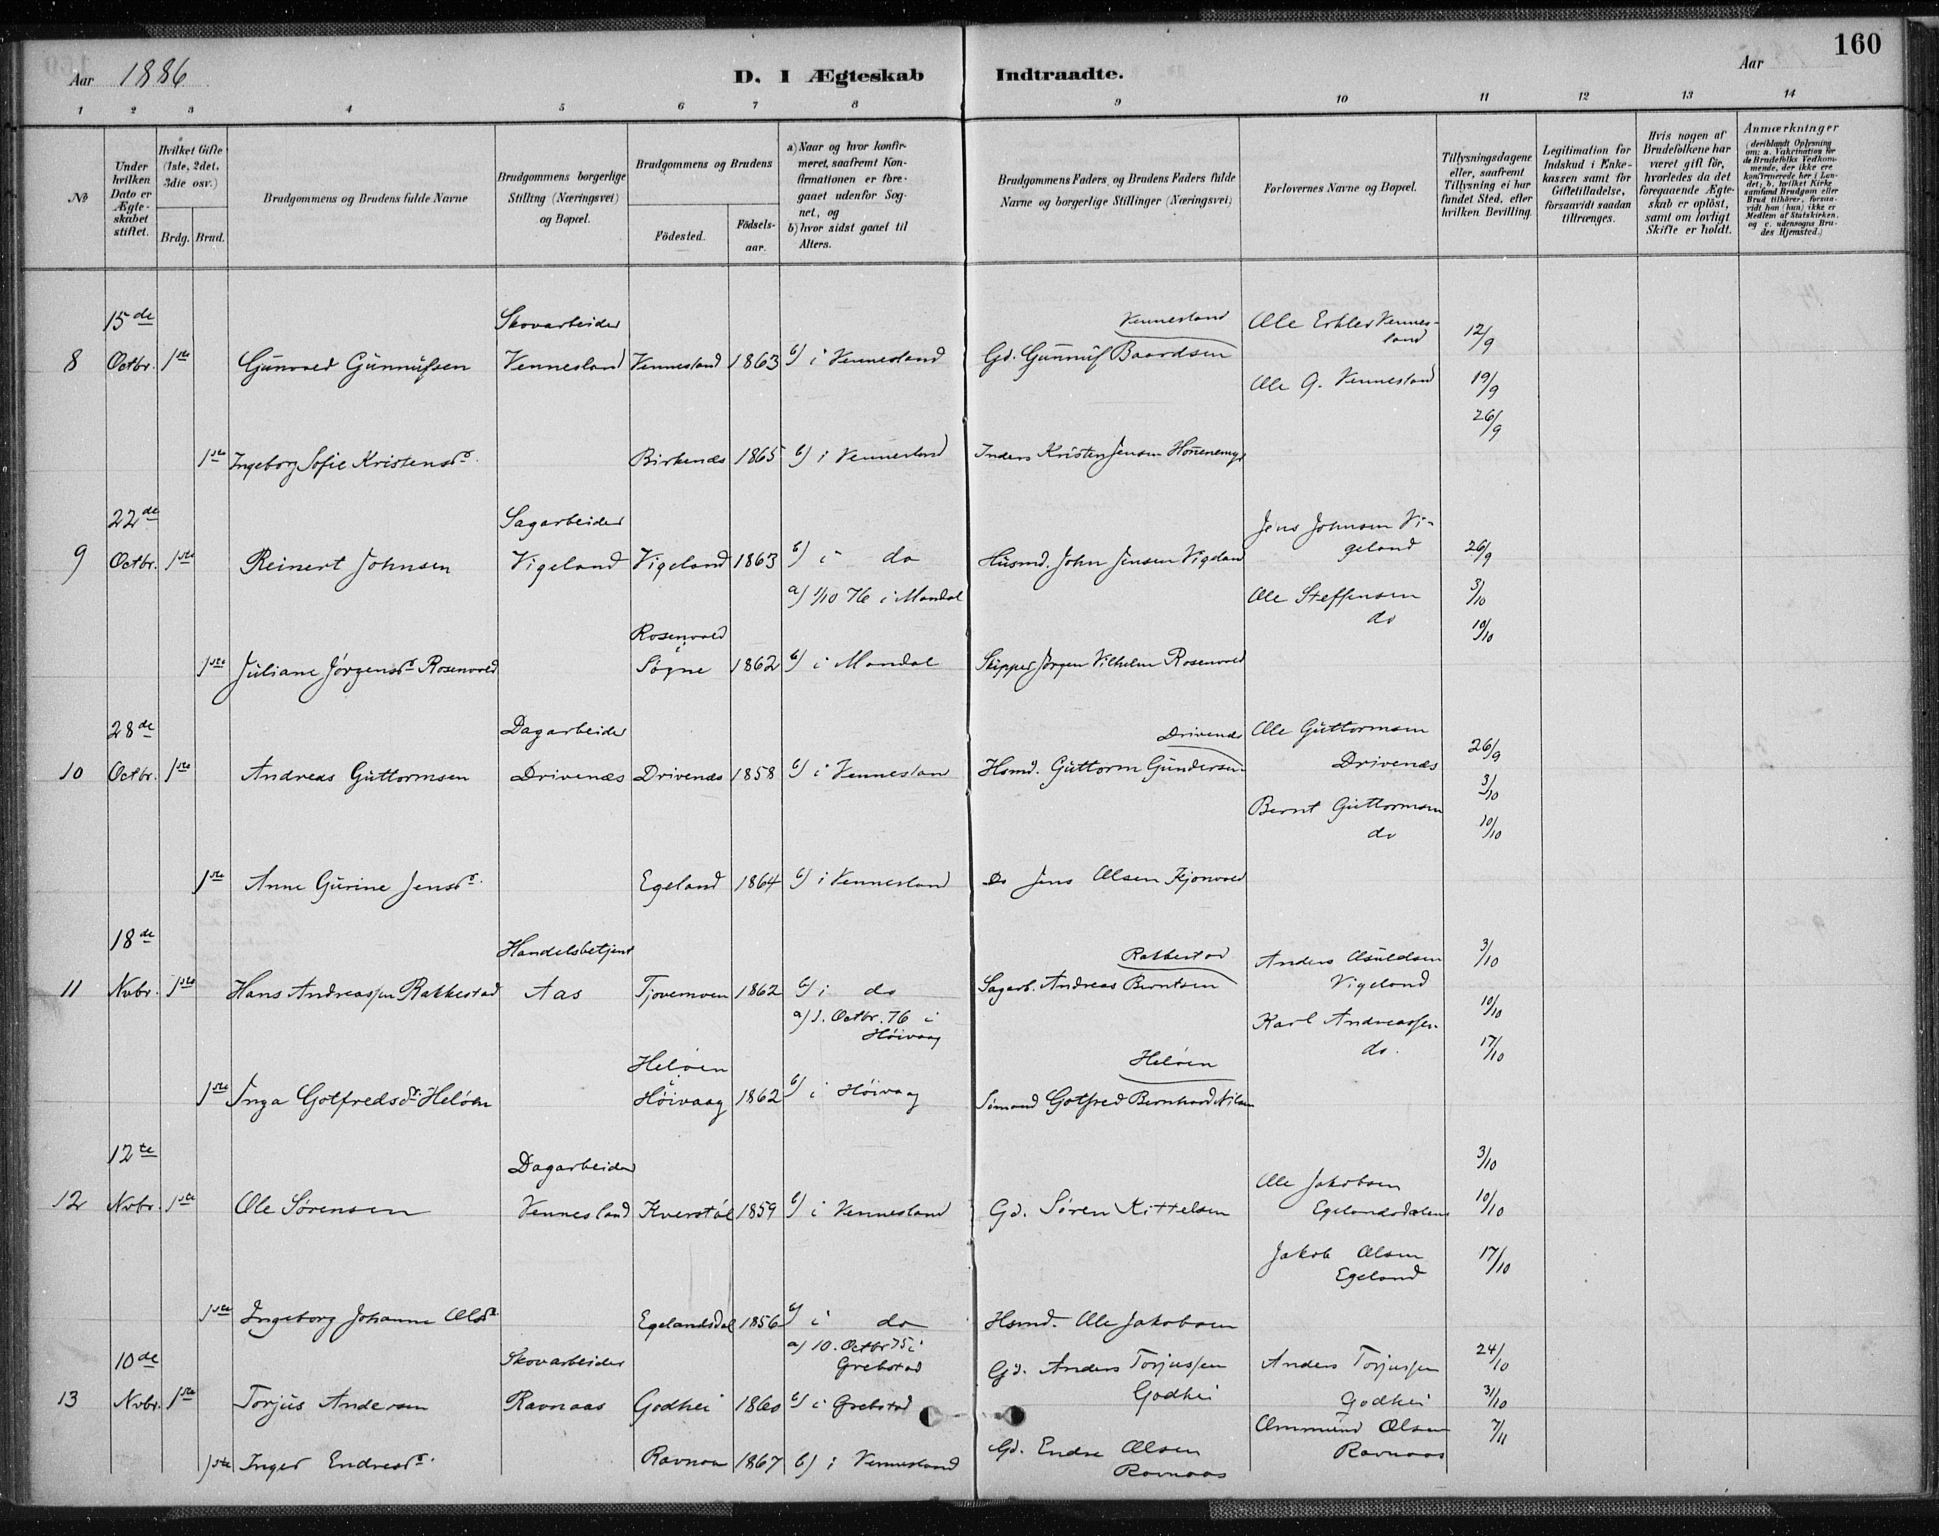 160
Aar 1886
D. I Ægteskab Indtraadte.
Aar
1 2 3 4 5 6 7 8 9 10 11 12 13 14
No
Under hvilken Dato er Ægteskabet stiftet.
Hvilket Gifte (1ste, 2det, 3die osv.)
Brdg. Brud.
Brudgommens og Brudens fulde Navne
Brudgommens borgerlige Stilling (Næringsvei) og Bopæl.
Brudgommens og Brudens
Födested.
Födselsaar.
a) Naar og hvor konfirmeret, saafremt Konfirmationen er foregaaet udenfor Sognet, og
b) hvor sidst gaaet til Alters.
Brudgommens Faders og Brudens Faders fulde Navne og borgerlige Stillinger (Næringsvei)
Forlovernes Navne og Bopæl.
Tillysningsdagene eller, saafremt Tillysning ei har fundet Sted, efter hvilken Bevilling.
Legitimation for Indskud i Enkekassen samt for Giftetilladelse, forsaavidt saadan tiltrænges.
Hvis nogen af Brudefolkene har været gift för, hvorledes da det foregaaende Ægteskab er oplöst, samt om lovligt Skifte er holdt.
Anmærkninger (deriblandt Oplysning om: a. Vakcination for de Brudefolks Vedkommende, der ikke ere konfirmerede her i Landet; b. hvilket Kirkesamfund Brudgom eller Brud tilhörer, forsaavidt han (hun) ikke er Medlem af Statskirken, og c. udensogns Brudes Hjemsted.)
15de Skovarbeider Vennesland Ole Vennesland 12/9
8 Octbr. 1ste Gunvald Gunnufsen Vennesland Vennesland 1863 b) i Vennesland Gd. Gunnuf Baardsen
Ole G. Vennesland 19/9
26/9
1ste Ingeborg Sofie Kristensd. Birkenæs 1865 b) i Vennesland Inders Kristen Jensen
22de Sagarbeider Jens Johnsen Vigeland
9 Octbr. 1ste Reinert Johnsen Vigeland Vigeland 1863 b) i do Husmd. John Jensen Vigeland 26/9
a) 1/10 76 i Mandal Ole Steffensen do 3/10
Rosenvold i 10/10
1ste Juliane Jörgensd. Rosenvold Søgne 1862 b) i Mandal Skipper Jørgen Vilhelm Rosenvold
28de Dagarbeider Drivenes Ole Guttormsen
10 Octbr. 1ste Andreas Guttormsen Drivenæs Drivenæs 1858 b) i Vennesland Hsmd. Guttorm Gundersen Drivenæs 26/9
3/10
Bernt Guttormsen do 10/10
1ste Anne Gurine Jensd. Egeland 1864 b) i Vennesland Do Jens Olsen Kjonvold
18de Handelsbetjent Rakkestad Anders Osuldsen 3/10
11 Nvbr. 1ste Hans Andreassen Rakkestad Aas Tjovemoen 1862 b) i do Sagarb. Andreas Berntsen Vigeland
a) 1. Octbr. 76 i Höivaag Karl Andreassen do. 10/10
Helöen i Helöen 17/10
1ste Inga Gotfredsd. Helöen Höivaag 1862 b) i Höivaag Sömand Gotfred Bernhard Nilsen
12te Dagarbeider 3/10
12 Nvbr. 1ste Ole Sörensen Vennesland Kverstøl 1859 b) i Vennesland Gd. Sören Kittelsen Ole Jakobsen Egelandsdalen 10/10
Jakob Olsen Egeland 17/10
1ste Ingeborg Johanne Olsd. Egelandsdal 1856 b) i do Hsmd. Ole Jakobsen
10de Skovarbeider a) 10. Octbr 75 i Grebstad Gd. Anders Torjussen Godhei Anders Torjussen 24/10
13 Nvbr. 1ste Torjus Andersen Ravnaas Godhei 1860 b) i Grebstad Godhei 31/10
Ommund Olsen Ravnaas 7/11
1ste Inger Endresd. Ravnaa 1867 b) i Vennesland Gd. Endre Olsen Ravnaas